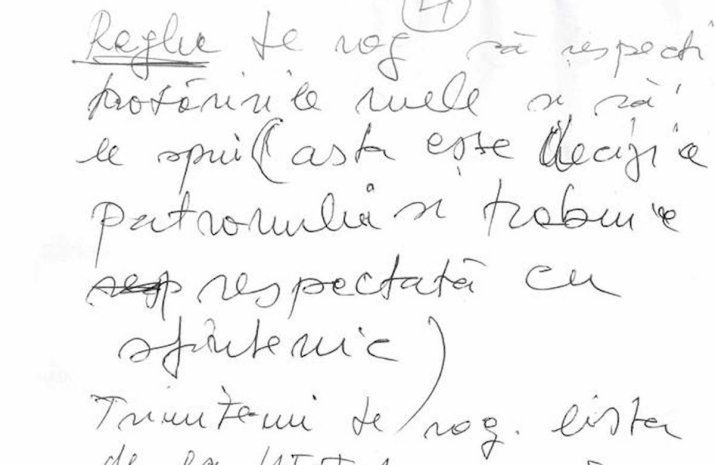 4
Reghe te rog să respecți
hotărîrile mele și să
le spui (asta este decizia
patronului și trebuie
resp respectată cu
sfințenie)
Trimitemi te rog. lista
de la